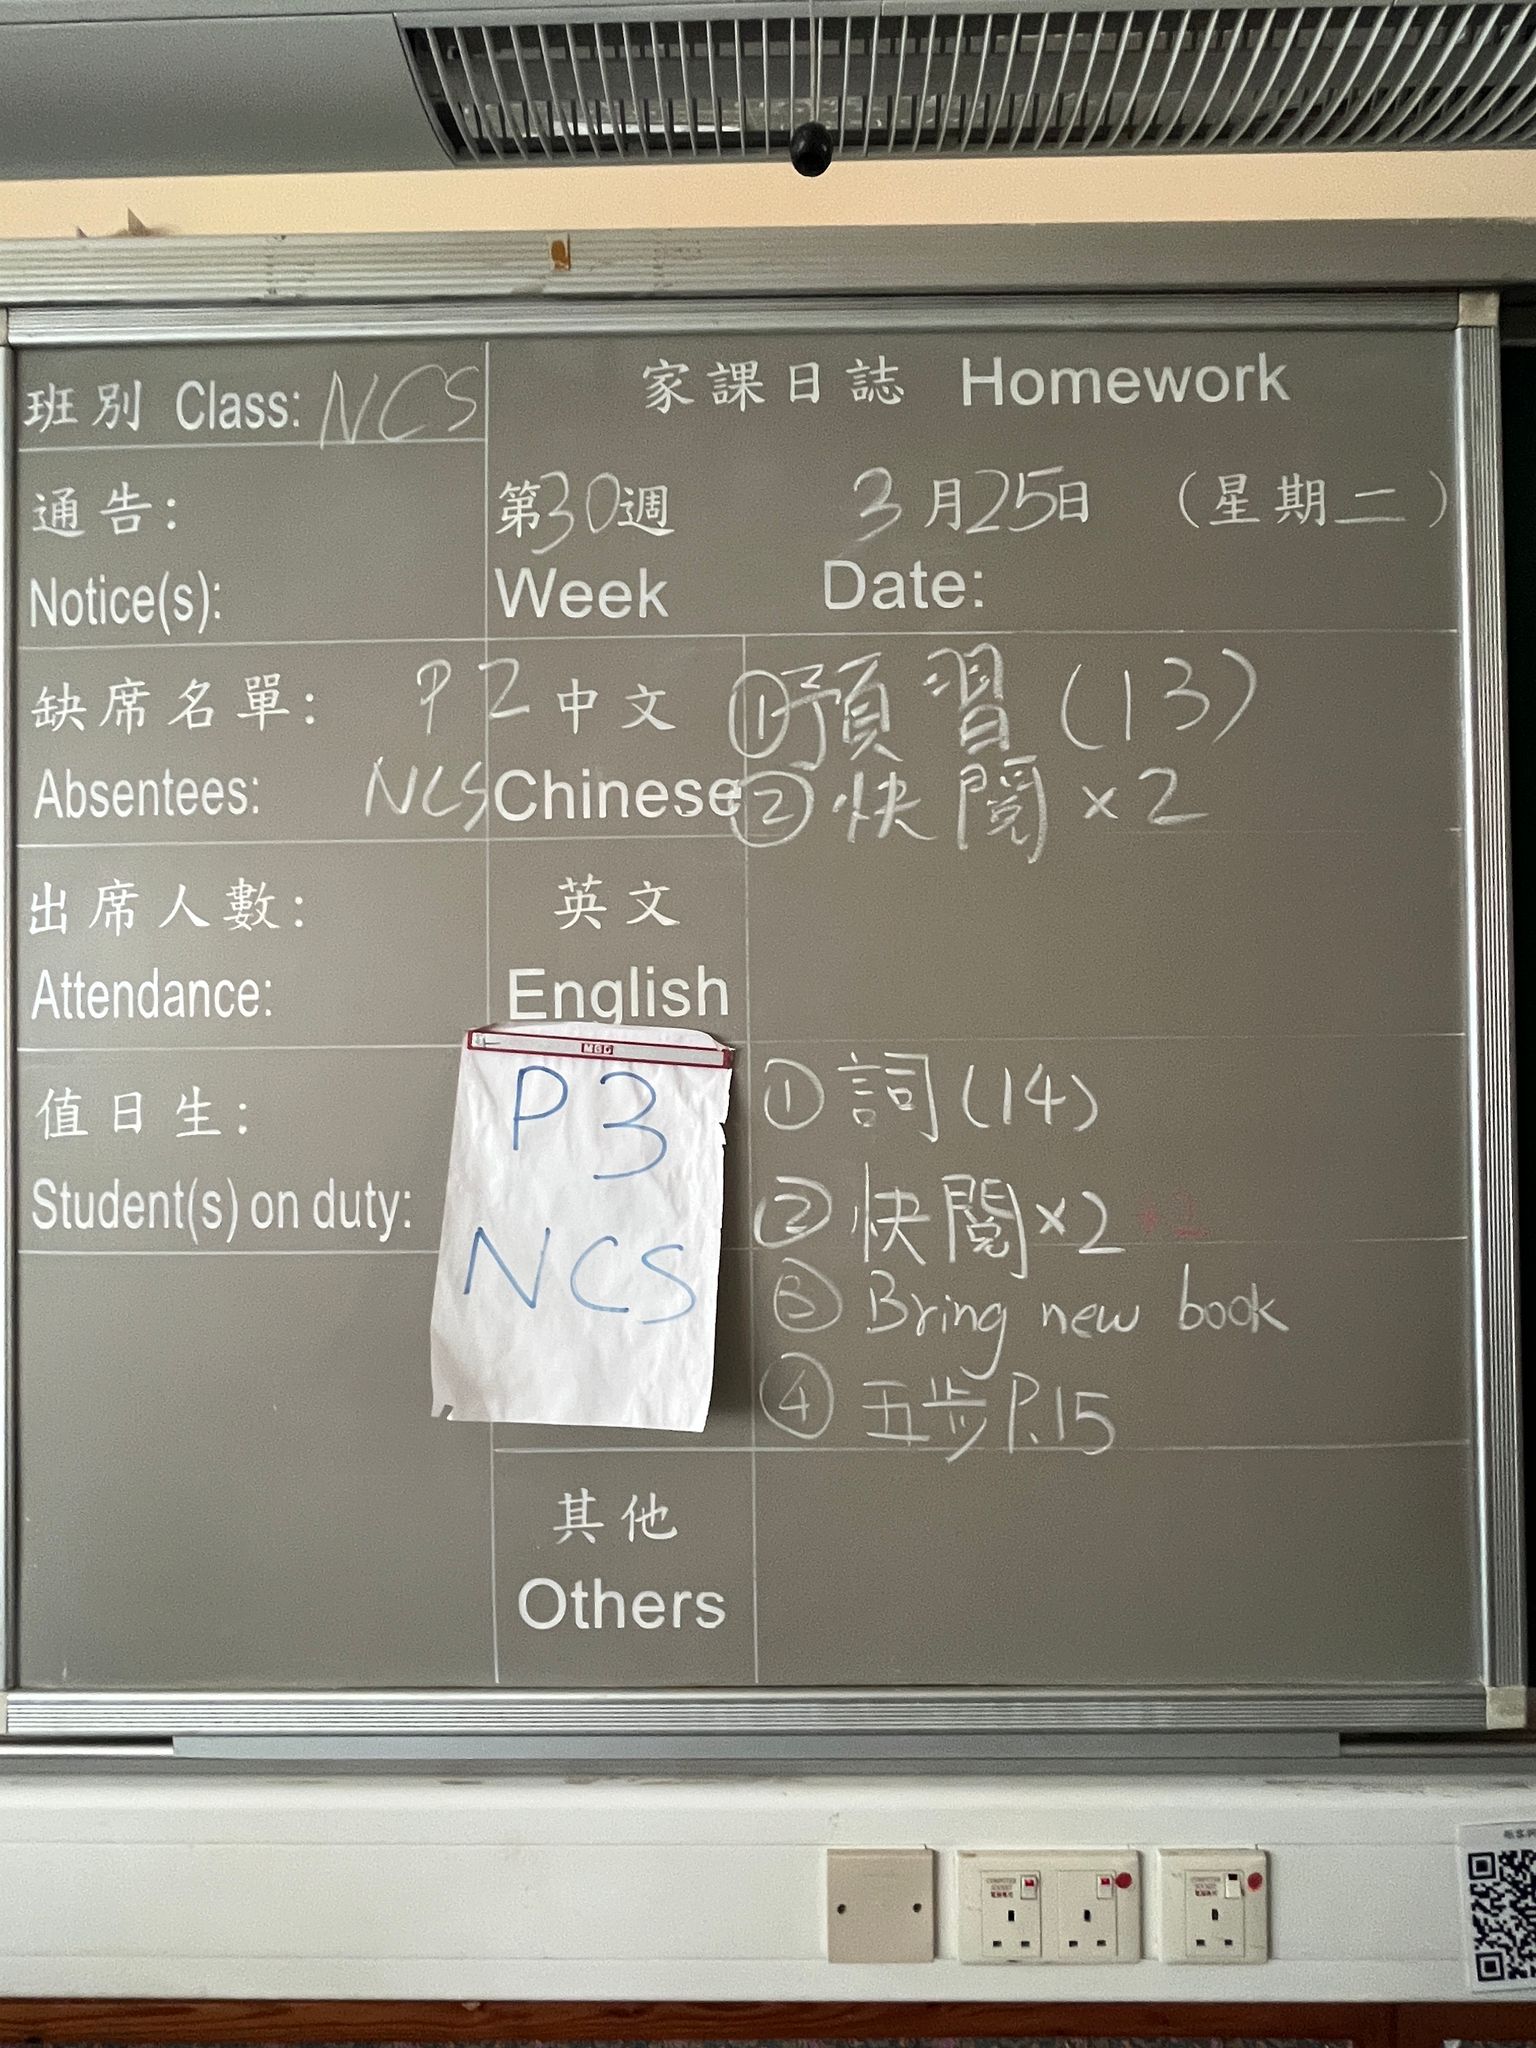 班別 Class: NCS
家課日誌 Homework
通告:
Notice(s):
第30週 3月25日 (星期二)
Week Date:
缺席名單:
Absentees:
P2
NCS
中文
Chinese
①預習(13)
②快閱×2
出席人數:
Attendance:
英文
English
值日生:
Student(s) on duty:
P3
NCS
①詞(14)
②快閱×2
③Bring new book
④五步P.15
其他
Others